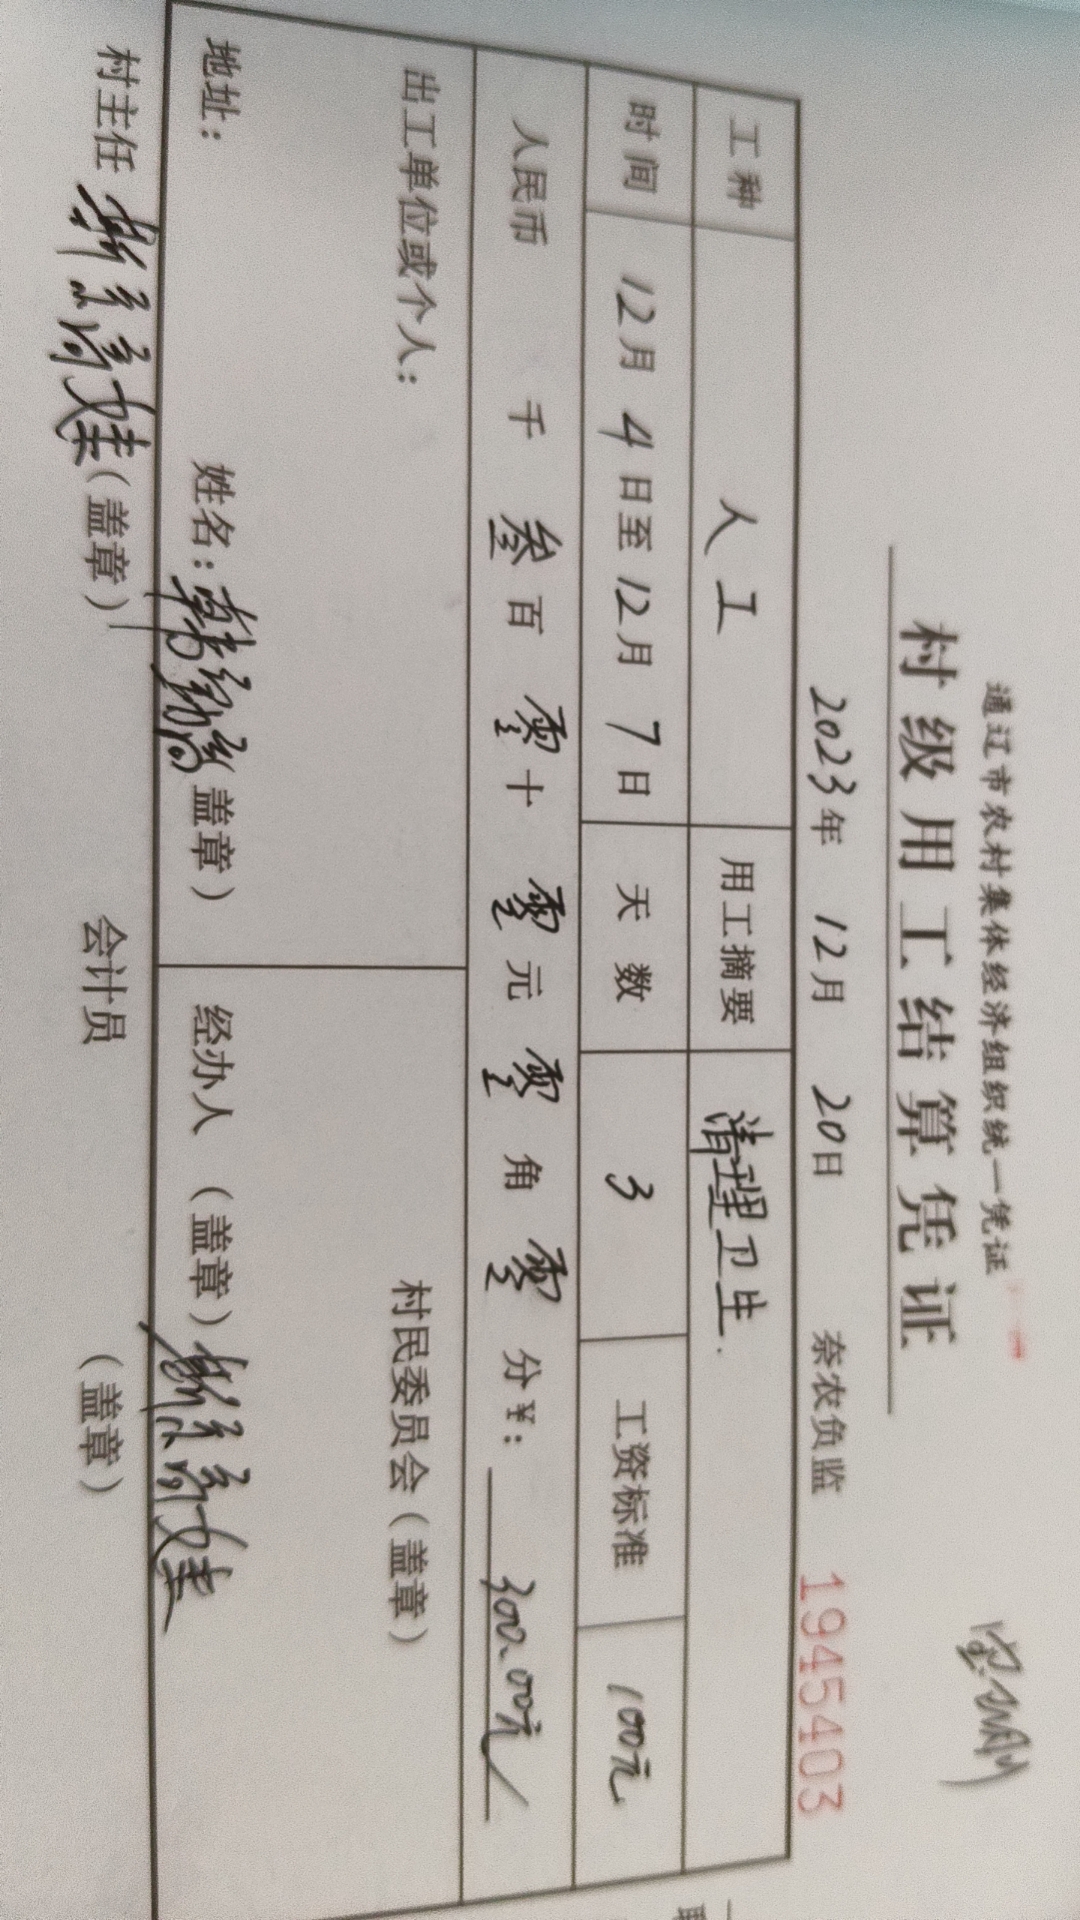 通辽市农村集体经济组织统一凭证
村级用工结算凭证
2023年 12月 20日 奈农负监 1945403
工种 人工 用工摘要 清理卫生.
时间 12月4日至12月7日 天数 3 工资标准 100元
人民币 千 叁百 零十 零元 零角 零分 ¥: 300.00元
出工单位或个人: 村民委员会(盖章)
地址: 姓名: 盖章) 经办人 (盖章)
村主任 (盖章) 会计员 (盖章)